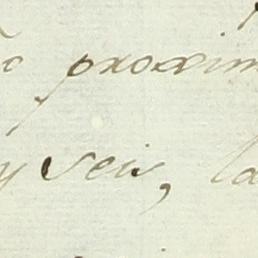 proxim
y seis, la